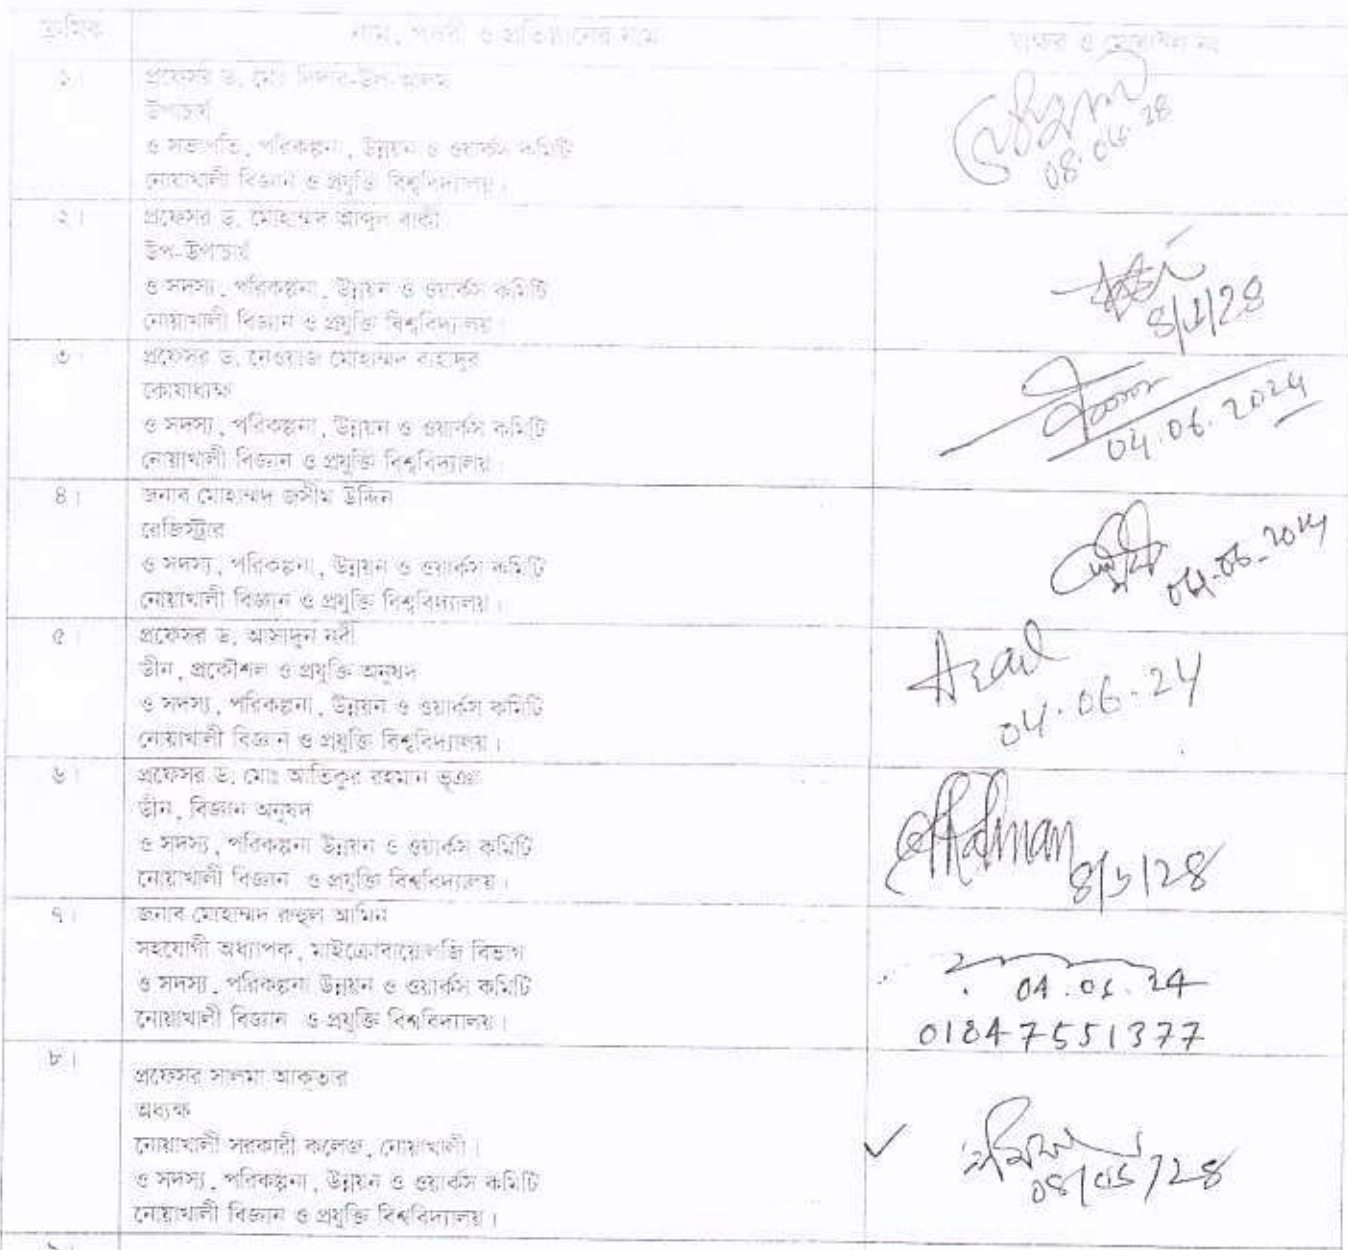 ক্রমিক
নাম, পদবী ও প্রতিষ্ঠানের নাম
স্বাক্ষর ও মোবাইল নং
১।
প্রফেসর ড. মোঃ দিদার-উল-আলম
উপাচার্য
ও সভাপতি, পরিকল্পনা, উন্নয়ন ও ওয়ার্কস কমিটি
নোয়াখালী বিজ্ঞান ও প্রযুক্তি বিশ্ববিদ্যালয়।
০৪.০৬.২৪
২।
প্রফেসর ড. মোহাম্মদ আব্দুল বাকী
উপ-উপাচার্য
ও সদস্য, পরিকল্পনা, উন্নয়ন ও ওয়ার্কস কমিটি
নোয়াখালী বিজ্ঞান ও প্রযুক্তি বিশ্ববিদ্যালয়।
৪/৬/২৪
৩।
প্রফেসর ড. নেওয়াজ মোহাম্মদ বাহাদুর
কোষাধ্যক্ষ
ও সদস্য, পরিকল্পনা, উন্নয়ন ও ওয়ার্কস কমিটি
নোয়াখালী বিজ্ঞান ও প্রযুক্তি বিশ্ববিদ্যালয়।
04.06.2024
৪।
জনাব মোহাম্মদ জসীম উদ্দিন
রেজিস্ট্রার
ও সদস্য, পরিকল্পনা, উন্নয়ন ও ওয়ার্কস কমিটি
নোয়াখালী বিজ্ঞান ও প্রযুক্তি বিশ্ববিদ্যালয়।
04-06-2024
৫।
প্রফেসর ড. আসাদুন নবী
ডীন, প্রকৌশল ও প্রযুক্তি অনুষদ
ও সদস্য, পরিকল্পনা, উন্নয়ন ও ওয়ার্কস কমিটি
নোয়াখালী বিজ্ঞান ও প্রযুক্তি বিশ্ববিদ্যালয়।
04.06.24
৬।
প্রফেসর ড. মোঃ আতিকুর রহমান ভূঞা
ডীন, বিজ্ঞান অনুষদ
ও সদস্য, পরিকল্পনা উন্নয়ন ও ওয়ার্কস কমিটি
নোয়াখালী বিজ্ঞান ও প্রযুক্তি বিশ্ববিদ্যালয়।
৪/৬/২৪
৭।
জনাব মোহাম্মদ রুহুল আমিন
সহযোগী অধ্যাপক, মাইক্রোবায়োলজি বিভাগ
ও সদস্য, পরিকল্পনা উন্নয়ন ও ওয়ার্কস কমিটি
নোয়াখালী বিজ্ঞান ও প্রযুক্তি বিশ্ববিদ্যালয়।
04.06.24
01847551377
৮।
প্রফেসর সালমা আকতার
অধ্যক্ষ
নোয়াখালী সরকারী কলেজ, নোয়াখালী।
ও সদস্য, পরিকল্পনা, উন্নয়ন ও ওয়ার্কস কমিটি
নোয়াখালী বিজ্ঞান ও প্রযুক্তি বিশ্ববিদ্যালয়।
০৪/০৬/২৪